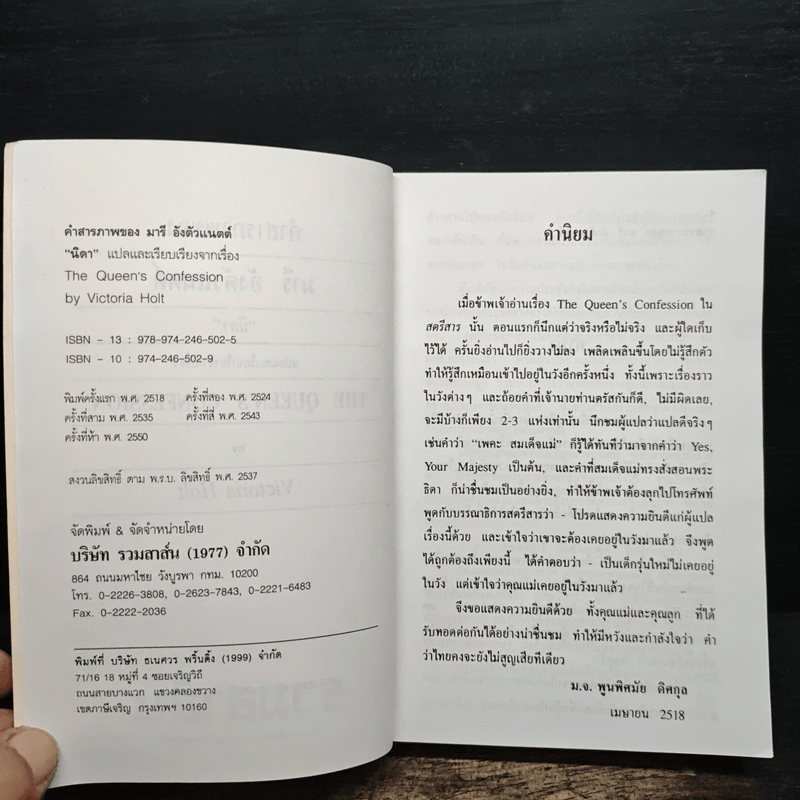 คำสารภาพของ มารี อังตัวแนตต์
"นิดา" แปลและเรียบเรียงจากเรื่อง
The Queen's Confession
by Victoria Holt
ISBN – 13 : 978-974-246-502-5
ISBN – 10 : 974-246-502-9
พิมพ์ครั้งแรก พ.ศ. 2518 ครั้งที่สอง พ.ศ. 2524
ครั้งที่สาม พ.ศ. 2535 ครั้งที่สี่ พ.ศ. 2543
ครั้งที่ห้า พ.ศ. 2550
สงวนลิขสิทธิ์ ตาม พ.ร.บ. ลิขสิทธิ์ พ.ศ. 2537
จัดพิมพ์ & จัดจำหน่ายโดย
บริษัท รวมสาส์น (1977) จำกัด
864 ถนนมหาไชย วังบูรพา กทม. 10200
โทร. 0-2226-3808, 0-2623-7843, 0-2221-6483
Fax. 0-2222-2036
พิมพ์ที่ บริษัท ธเนศวร พริ้นติ้ง (1999) จำกัด
71/16 18 หมู่ที่ 4 ซอยเจริญวิถี
ถนนสายบางแวก แขวงคลองขวาง
เขตภาษีเจริญ กรุงเทพฯ 10160
คำนิยม
เมื่อข้าพเจ้าอ่านเรื่อง The Queen's Confession ใน
สตรีสาร นั้น ตอนแรกก็นึกแต่ว่าจริงหรือไม่จริง และผู้ใดเก็บ
ไว้ได้ ครั้นยิ่งอ่านไปก็ยิ่งวางไม่ลง เพลิดเพลินขึ้นโดยไม่รู้สึกตัว
ทำให้รู้สึกเหมือนเข้าไปอยู่ในวังอีกครั้งหนึ่ง ทั้งนี้เพราะเรื่องราว
ในวังต่างๆ และถ้อยคำที่เจ้านายท่านตรัสกันก็ดี, ไม่มีผิดเลย,
จะมีบ้างก็เพียง 2-3 แห่งเท่านั้น นึกชมผู้แปลว่าแปลดีจริงๆ
เช่นคำว่า "เพคะ สมเด็จแม่" ก็รู้ได้ทันทีว่ามาจากคำว่า Yes,
Your Majesty เป็นต้น, และคำที่สมเด็จแม่ทรงสั่งสอนพระ
ธิดา ก็น่าชื่นชมเป็นอย่างยิ่ง, ทำให้ข้าพเจ้าต้องลุกไปโทรศัพท์
พูดกับบรรณาธิการสตรีสารว่า - โปรดแสดงความยินดีแก่ผู้แปล
เรื่องนี้ด้วย และเข้าใจว่าเขาจะต้องเคยอยู่ในวังมาแล้ว จึงพูด
ได้ถูกต้องถึงเพียงนี้ ได้คำตอบว่า - เป็นเด็กรุ่นใหม่ไม่เคยอยู่
ในวัง แต่เข้าใจว่าคุณแม่เคยอยู่ในวังมาแล้ว
จึงขอแสดงความยินดีด้วย ทั้งคุณแม่และคุณลูก ที่ได้
รับทอดต่อกันได้อย่างน่าชื่นชม ทำให้มีหวังและกำลังใจว่า คำ
ว่าไทยคงจะยังไม่สูญเสียทีเดียว
ม.จ. พูนพิศมัย ดิศกุล
เมษายน 2518